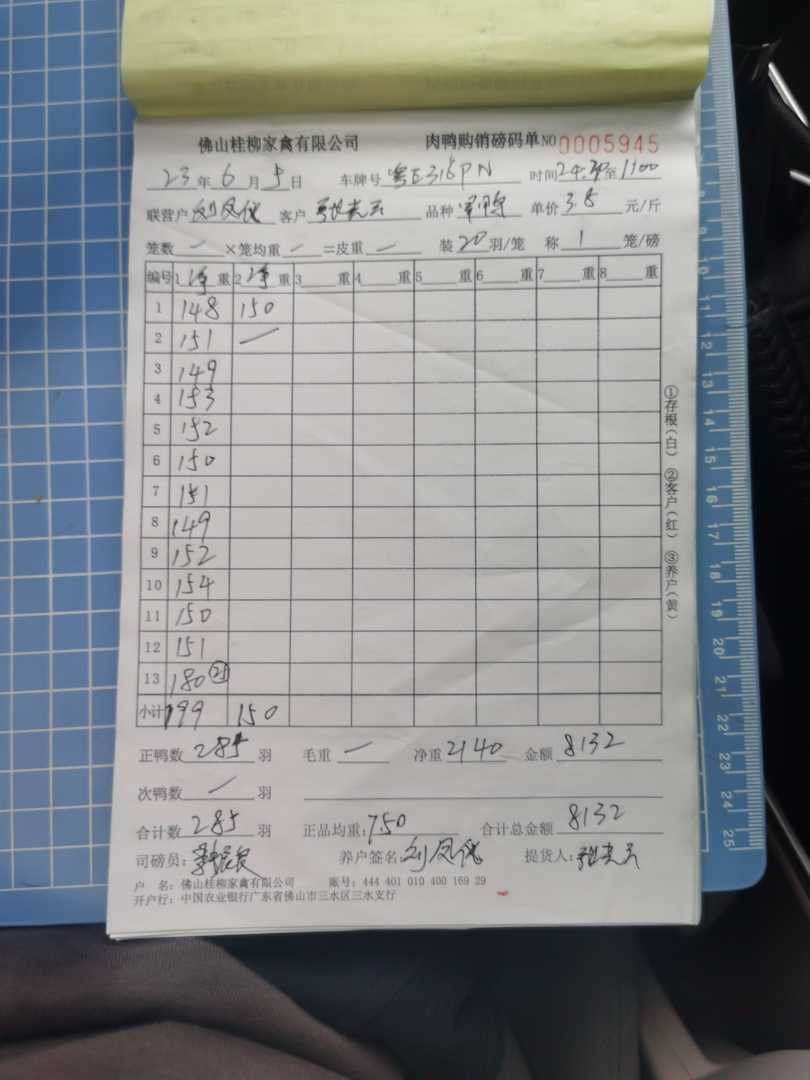 佛山桂柳家禽有限公司 肉鸭购销磅码单 NO 0005945
23 年 6 月 5 日 车牌号 粤E316PN 时间 至 1100
联营户 刘凤仪 客户 品种 单价 3.8 元/斤
笼数 — ×笼均重 — =皮重 — 装 20 羽/笼 称 1 笼/磅
编号 1 净 重 2 净 重 3 重 4 重 5 重 6 重 7 重 8 重
1 148 150
2 151 —
3 149
4 153
5 152
6 150
7 151
8 149
9 152
10 154
11 150
12 151
13 180 25
小计 199 150
正鸭数 285 羽 毛重 — 净重 2140 金额 8132
次鸭数 — 羽
合计数 285 羽 正品均重: 750 合计总金额 8132
司磅员: 养户签名: 刘凤仪 提货人:
户 名: 佛山桂柳家禽有限公司 账号: 444 401 010 400 169 29
开户行: 中国农业银行广东省佛山市三水区三水支行
①存根(白) ②客户(红) ③养户(黄)
10
11
12
13
14
15
16
17
18
19
20
21
22
23
24
25